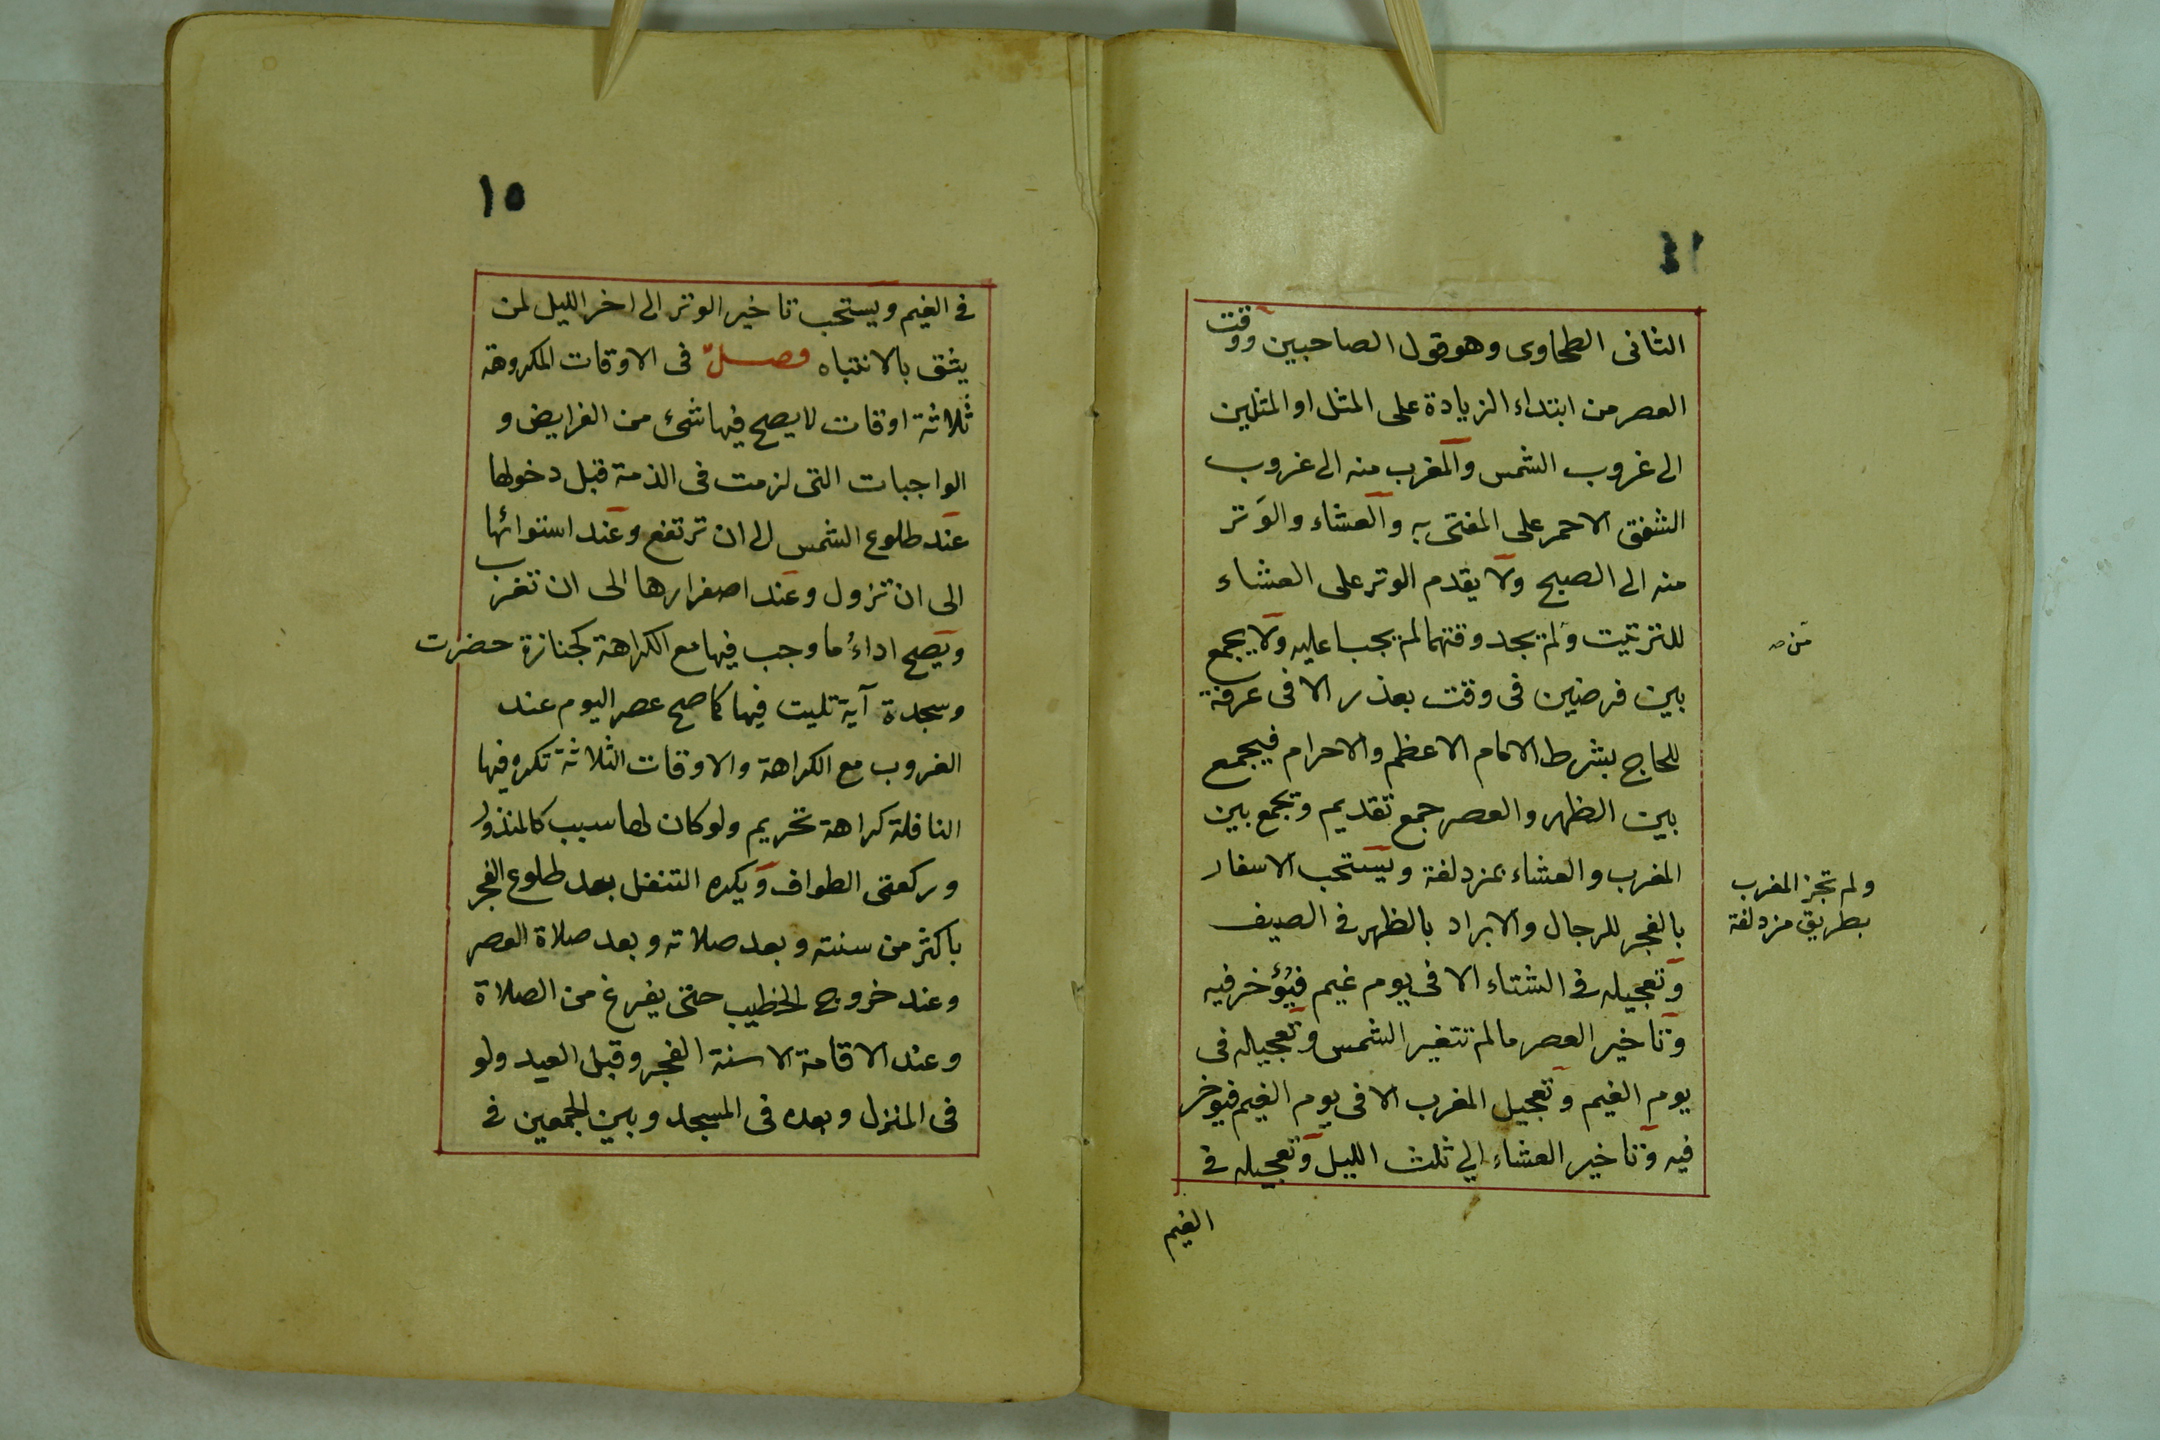 ١٤
الثانى الطحاوى وهو قول الصاحبين ووقت
العصر من ابتداء الزيادة على المثل او المثلين
الى غروب الشمس والمغرب منه الى غروب
الشفق الاحمر على المفتى به والعشاء والوتر
منه الى الصبح ولا يقدم الوتر على العشاء
للترتيت ولم يجد وقتهما لم يجبا عليه ولا يجمع
بين فرضين فى وقت بعذر الا فى عرفة
للحاج بشرط الامام الاعظم والاحرام فيجمع
بين الظهر والعصر جمع تقديم وتجمع بين
المغرب والعشاء بمزدلفة ويستحب الاسفار
بالفجر للرجال والابراد بالظهر فى الصيف
وتعجيله فى الشتاء الا فى يوم غيم فيؤخر فيه
وتاخير العصر مالم تتغير الشمس وتعجيله فى
يوم الغيم وتعجيل المغرب الا فى يوم الغيم فيوخر
فيه وتاخير العشاء الي ثلث الليل وتعجيله فى
الغيم
من صـ
ولم تجز المغرب
بطريق مزدلفة
١٥
فى الغيم ويستحب تاخير الوتر الى اخر الليل لمن
يثق بالانتباه فصل فى الاوقات المكروهة
ثلاثة اوقات لا يصح فيها شئ من الفرايض و
الواجبات التى لزمت فى الذمة قبل دخولها
عند طلوع الشمس الى ان ترتفع وعند استوائها
الى ان تزول وعند اصفرارها الى ان تغرب
ويصح اداء ما وجب فيها مع الكراهة كجنازة حضرت
وسجدة آية تليت فيها كما صح عصر اليوم عند
الغروب مع الكراهة والاوقات الثلاثة تكره فيها
النافلة كراهة تحريم ولو كان لها سبب كالمنذور
وركعتى الطواف ويكره التنفل بعد طلوع الفجر
باكثر من سنته وبعد صلاته وبعد صلاة العصر
وعند خروج الخطيب حتى يفرغ من الصلاة
وعند الاقامة الا سنة الفجر وقبل العيد ولو
فى المنزل وبعده فى المسجد وبين الجمعين فى